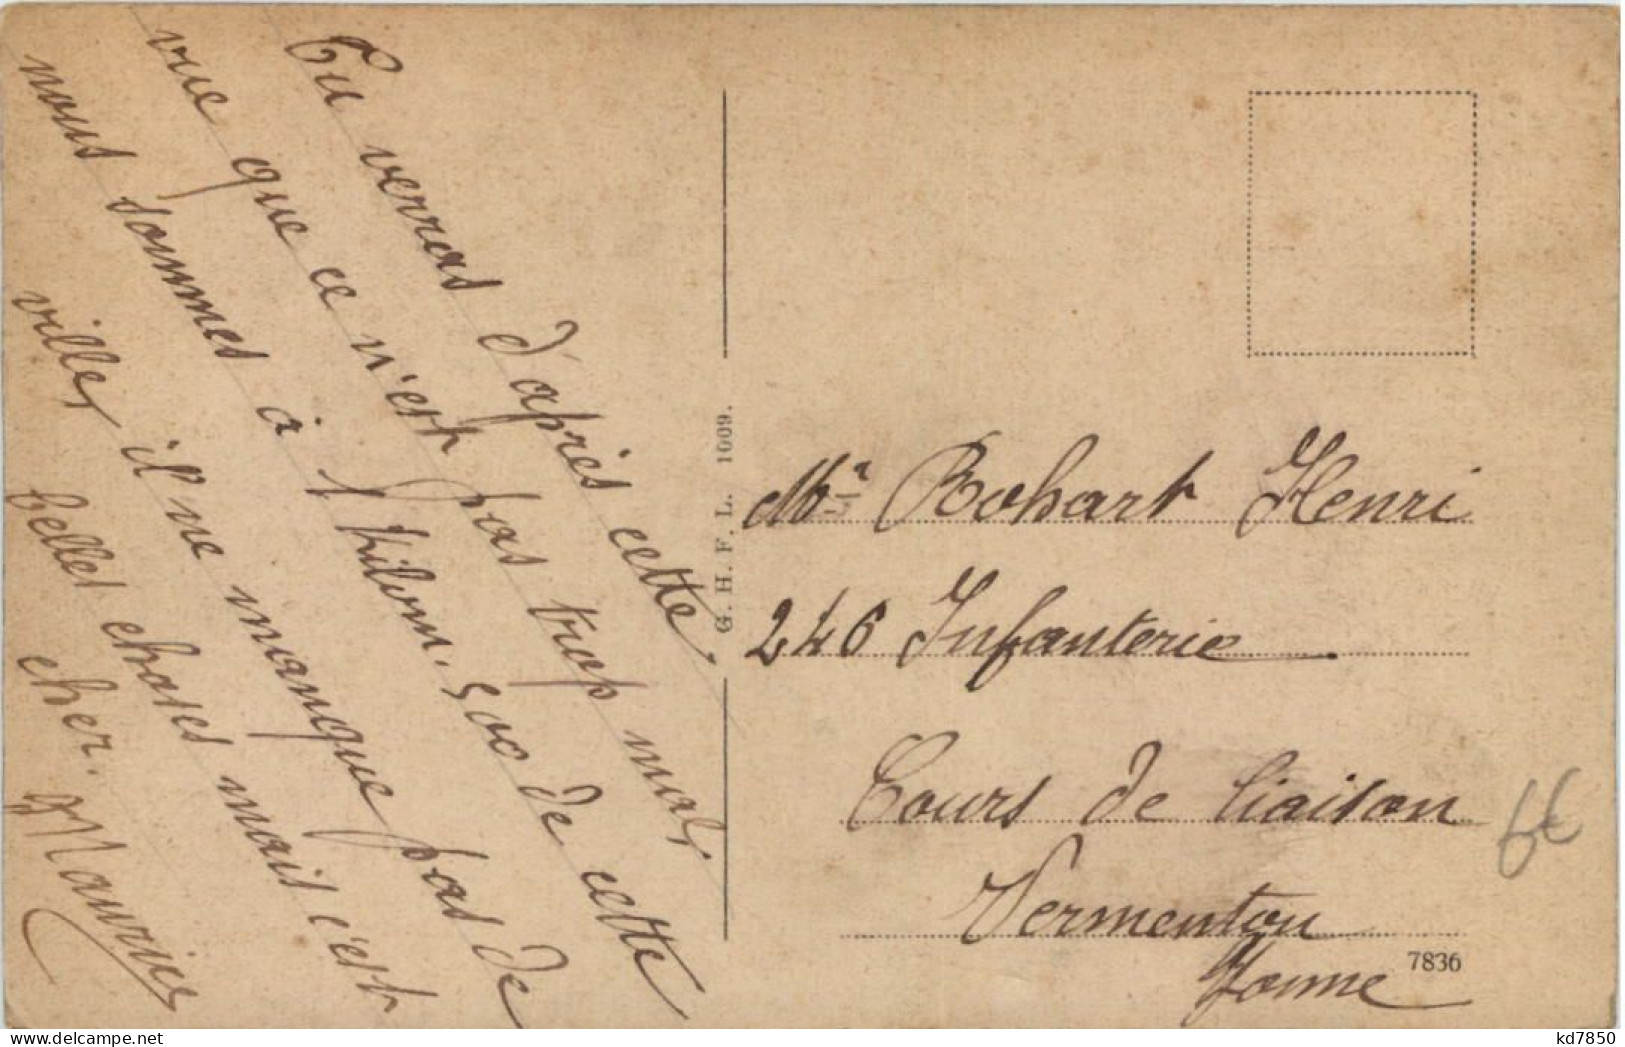 Tu verras d'après cette
vue que ce n'est pas trop mal
nous sommes à 1 kilom. 500 de cette
ville, il ne manque pas de
belles choses mais c'est
cher. Maurice
G. H. F. L. 1009.
Mr Rohart Henri
246 Infanterie
Cours de liaison
Vermenton
Yonne
7836
6€
kd7850